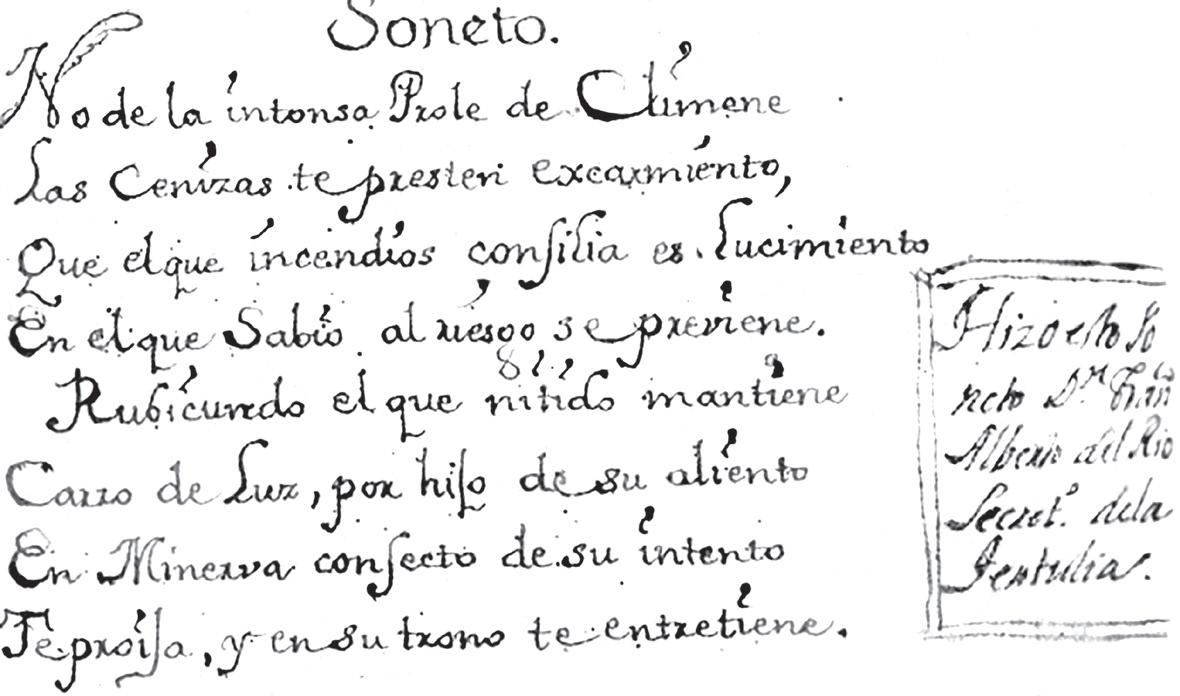 Soneto.
No de la intonsa Prole de Climene
Las Cenizas te presten excarmiento,
Que el que incendios consilia es lucimiento
En el que Sabio al riesgo se previene.
Rubicundo el que nitido mantiene
Carro de Luz, por hijo de su aliento
En Minerva consecto de su intento
Te proija, y en su trono te entretiene.
Hizo esto So
neto Dn. Fran
Alberto del Rio
Secret.º dela
Tertulia.